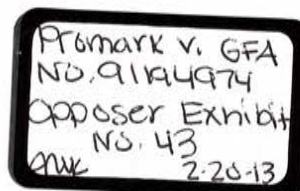 Promark v. GFA
No. 91194974
Opposer Exhibit
No. 43
2-20-13